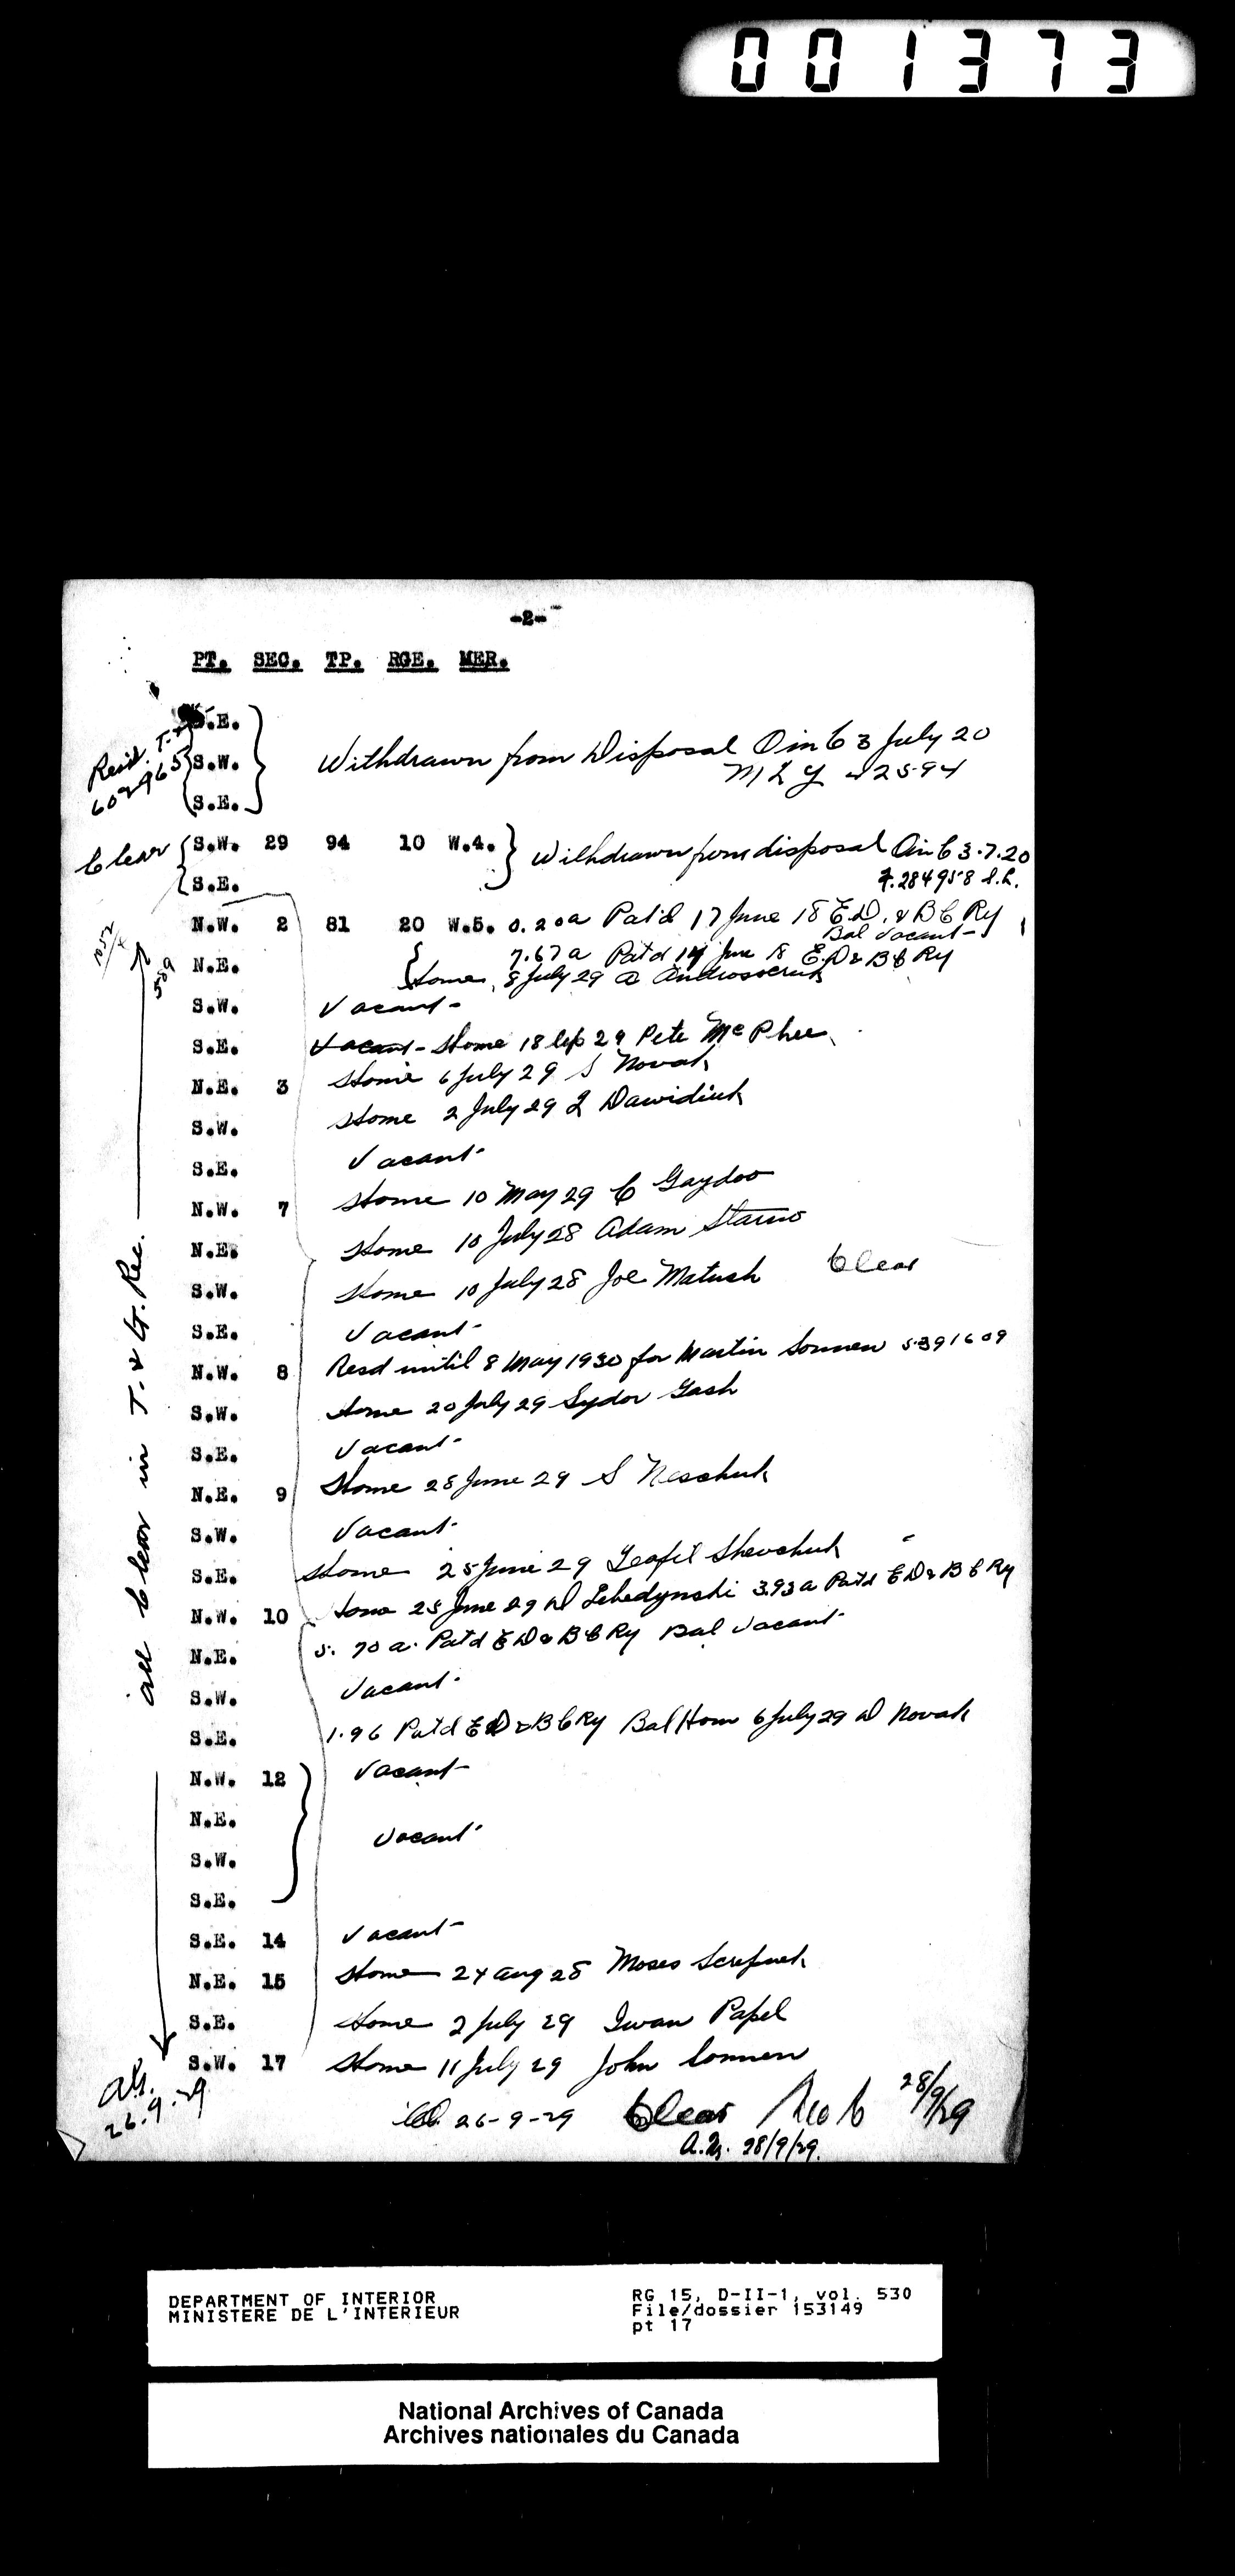 001373
-2-
PT. SEC. TP. RGE. MER.
S.E.
S.W. Withdrawn from Disposal O in C 3 July 20
S.E.
Clear S.W. 29 94 10 W.4. Withdrawn from disposal O in C 3.7.20
S.E. 284958
N.W. 2 81 20 W.5. 0.20a Pat'd 17 June 18 E.D. & B C Ry
Bal Vacant
N.E. 7.67a Pat'd June 18 E.D & B C Ry
Home 8 July 29
S.W. Vacant
S.E. Vacant - Home 18 Sep 29 Pete McPhee
N.E. 3 Home 6 July 29 S Novak
S.W. Home 2 July 29 Dawidiuk
S.E. Vacant
N.W. 7 Home 10 May 29 C
N.E. Home 10 July 28 Adam
S.W. Home 10 July 28 Joe Matush Clear
S.E. Vacant
N.W. 8 Resd until 8 May 1930 for Martin 5391609
S.W. Home 20 July 29 Sydor Gash
S.E. Vacant
N.E. 9 Home 28 June 29 S
S.W. Vacant
S.E. Home 25 June 29 Shevchuk
N.W. 10 Home 25 June 29 3.93a Pat'd E D & B C Ry
N.E. 5.70 a. Pat'd E D & B C Ry Bal Vacant
S.W. Vacant
S.E. 1.96 Pat'd E D & B C Ry Bal Hom 6 July 29 D Novak
N.W. 12 Vacant
N.E.
Vacant
S.W.
S.E.
S.E. 14 Vacant
N.E. 15 Home 24 Aug 28 Moses
S.E. Home 2 July 29 Iwan Papel
S.W. 17 Home 11 July 29 John
all Clear in T. & G. Rec.
26-9-29
26-9-29 Clear 28/9/29
28/9/29.
DEPARTMENT OF INTERIOR
MINISTERE DE L'INTERIEUR
RG 15, D-II-1, vol. 530
File/dossier 153149
pt 17
National Archives of Canada
Archives nationales du Canada